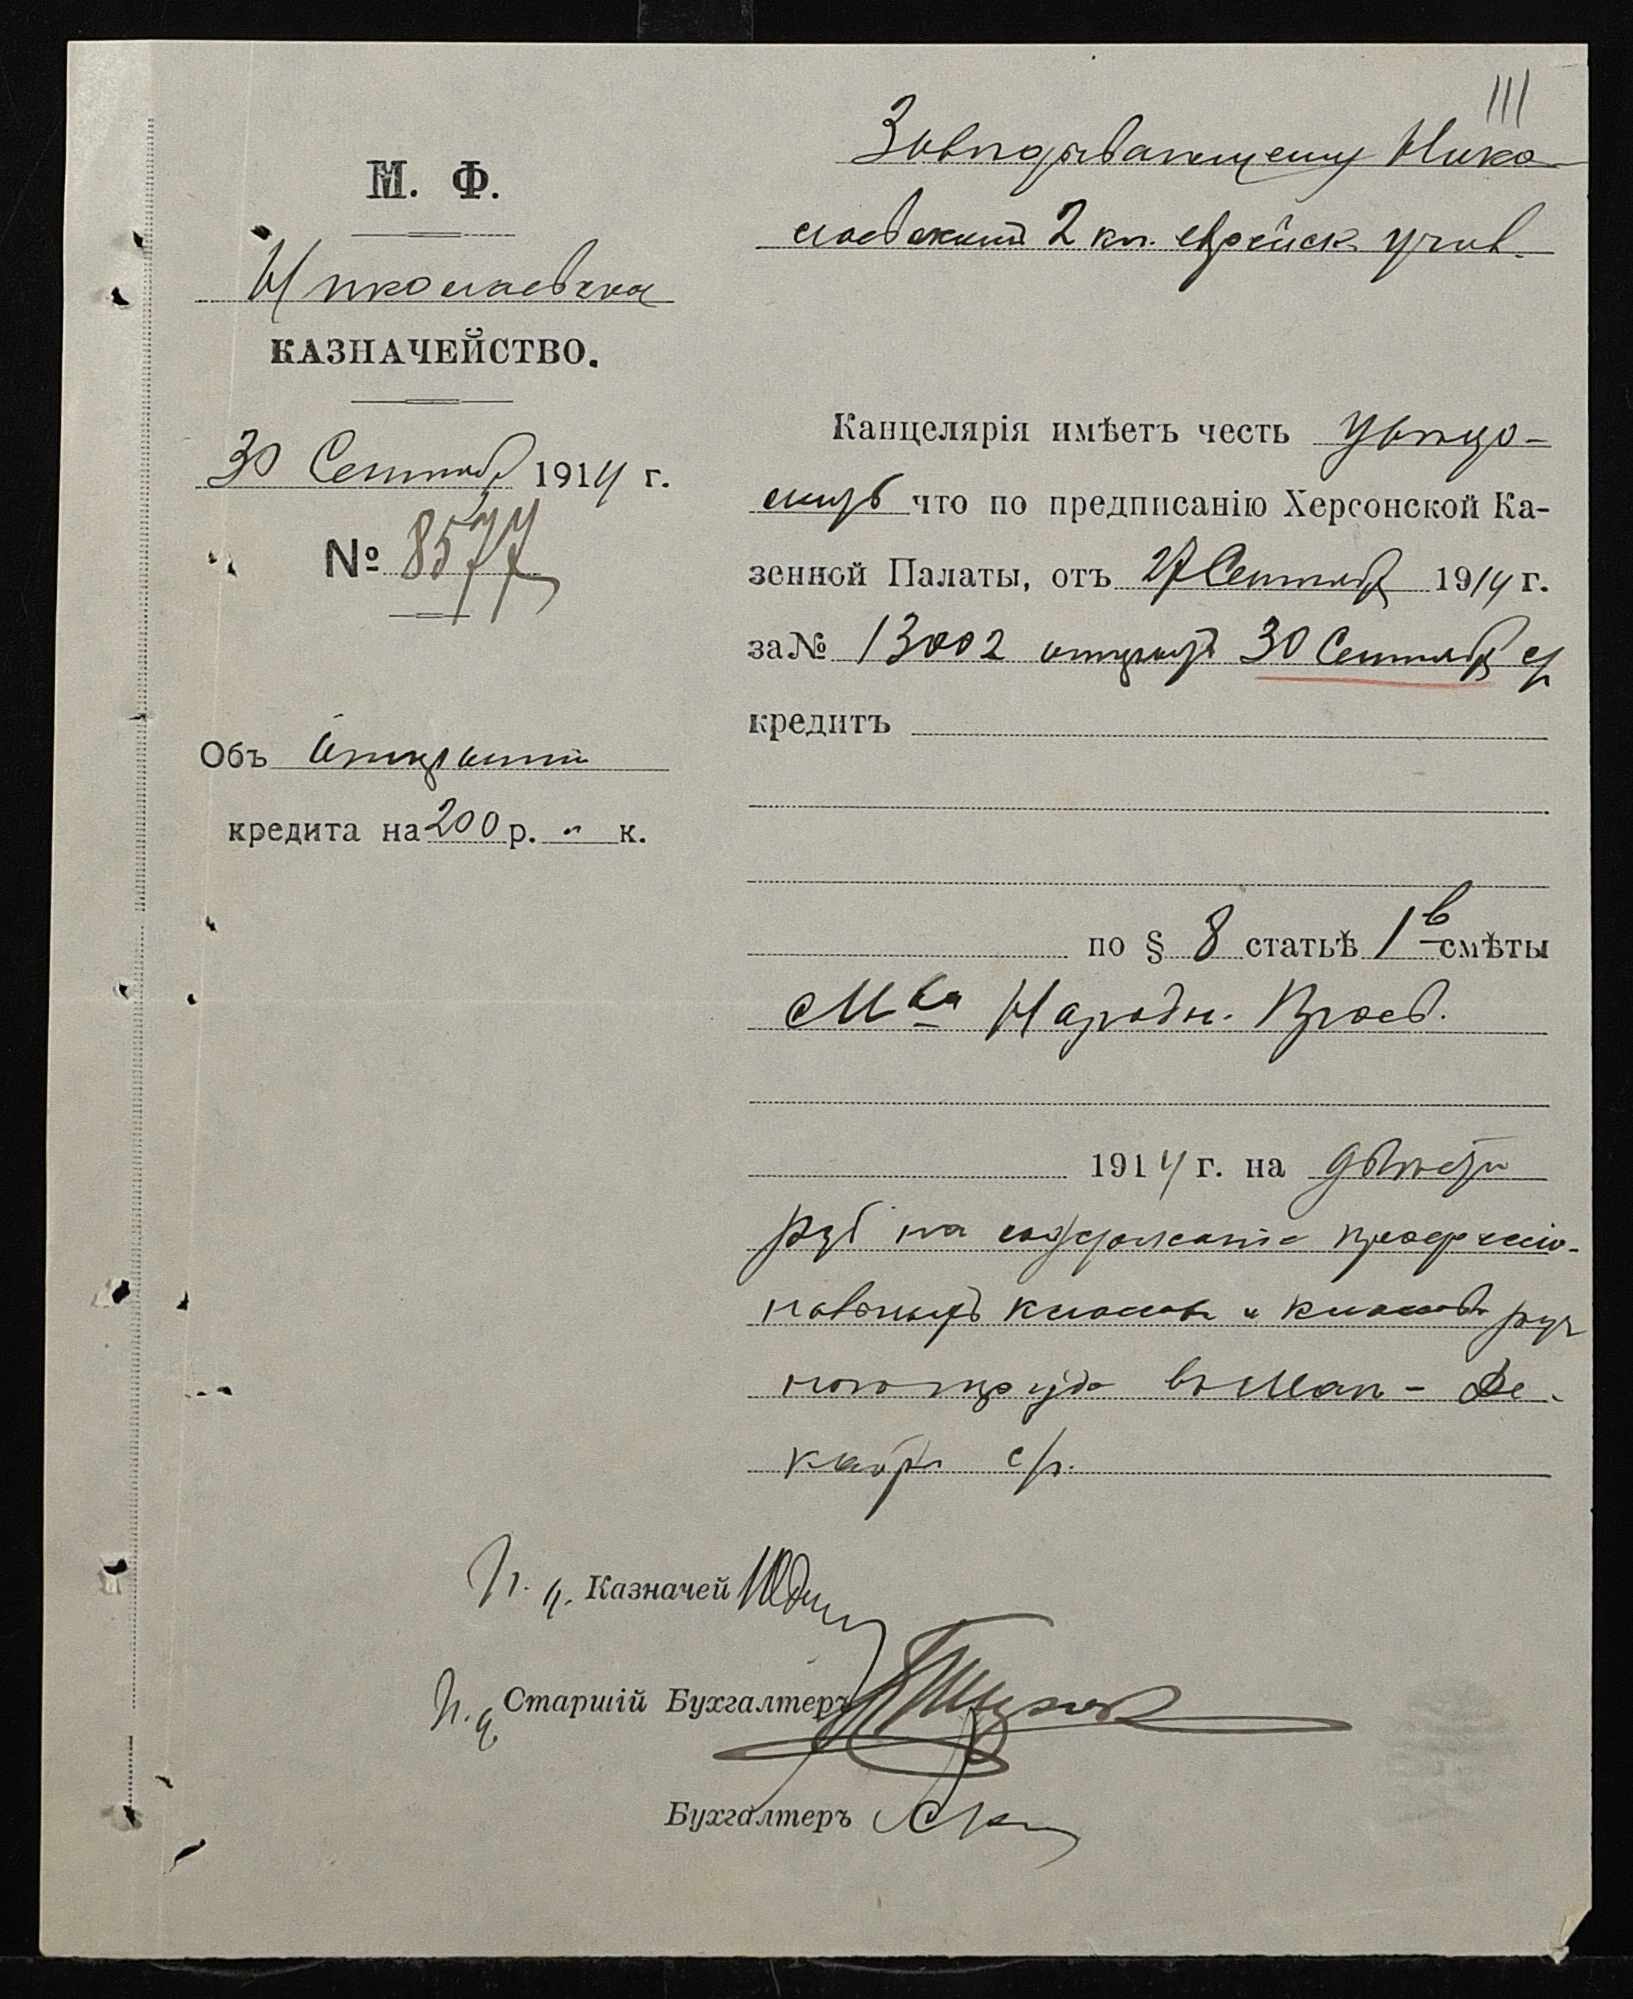 111
М. Ф.
Николаевское
КАЗНАЧЕЙСТВО.
30 Сентября 1914 г.
№ 8577
Объ открытіи
кредита на 200 р. " к.
Завѣдывающему Нико-
лаевскимъ 2 кл. еврейск. учил.
Канцелярія имѣетъ честь увѣдо-
мить что по предписанію Херсонской Ка-
зенной Палаты, отъ 27 Сентября 1914 г.
за № 13002 открытъ 30 Сентября с/г
кредитъ
по § 8 статьѣ 1 в смѣты
М-ва Народн. Просв.
1914 г. на двѣсти
руб на содержаніе профессіо-
нальныхъ классовъ и классовъ руч
ного труда въ Маѣ - Де-
кабрѣ с/г.
И. д. Казначей
И. д. Старшій Бухгалтеръ
Бухгалтеръ